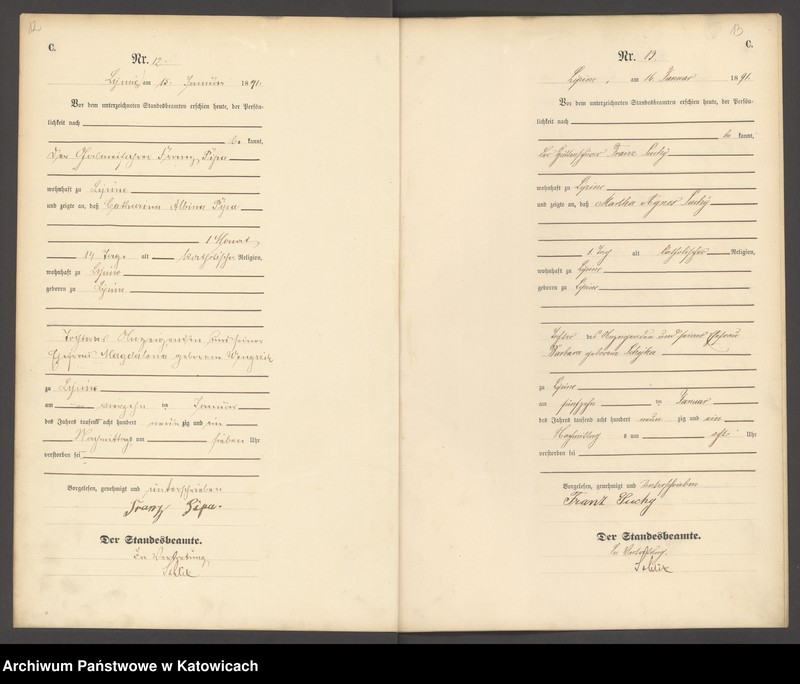 12
C.
Nr. 12.
Lipine am 15. Januar 1891.
Vor dem unterzeichneten Standesbeamten erschien heute, der Persön-
lichkeit nach
be kannt,
Der Franz Pypa
wohnhaft zu Lipine
und zeigte an, daß Catharina Albina Pypa
1 Monat
14 Tage alt katholischer Religion,
wohnhaft zu Lipine
geboren zu Lipine
Tochter des Anzeigenden und seiner
Ehefrau Magdalena geborenen
zu Lipine
am vierzehn ten Januar
des Jahres tausend acht hundert neun zig und ein
Nachmittags um sieben Uhr
verstorben sei
Vorgelesen, genehmigt und unterschrieben
Franz Pipa.
Der Standesbeamte.
In Vertretung
13
C.
Nr. 13
Lipine, am 16. Januar 1891.
Vor dem unterzeichneten Standesbeamten erschien heute, der Persön-
lichkeit nach
be kannt,
der Franz Suchy
wohnhaft zu Lipine
und zeigte an, daß Martha Agnes Suchy
1 Tag alt katholischer Religion,
wohnhaft zu Lipine
geboren zu Lipine
Tochter des Anzeigenden und seiner Ehefrau
Barbara geborene
zu Lipine
am fünfzehn ten Januar
des Jahres tausend acht hundert neun zig und ein
Nachmittag s um acht Uhr
verstorben sei
Vorgelesen, genehmigt und unterschrieben
Franz Suchy
Der Standesbeamte.
In Vertretung.
Archiwum Państwowe w Katowicach